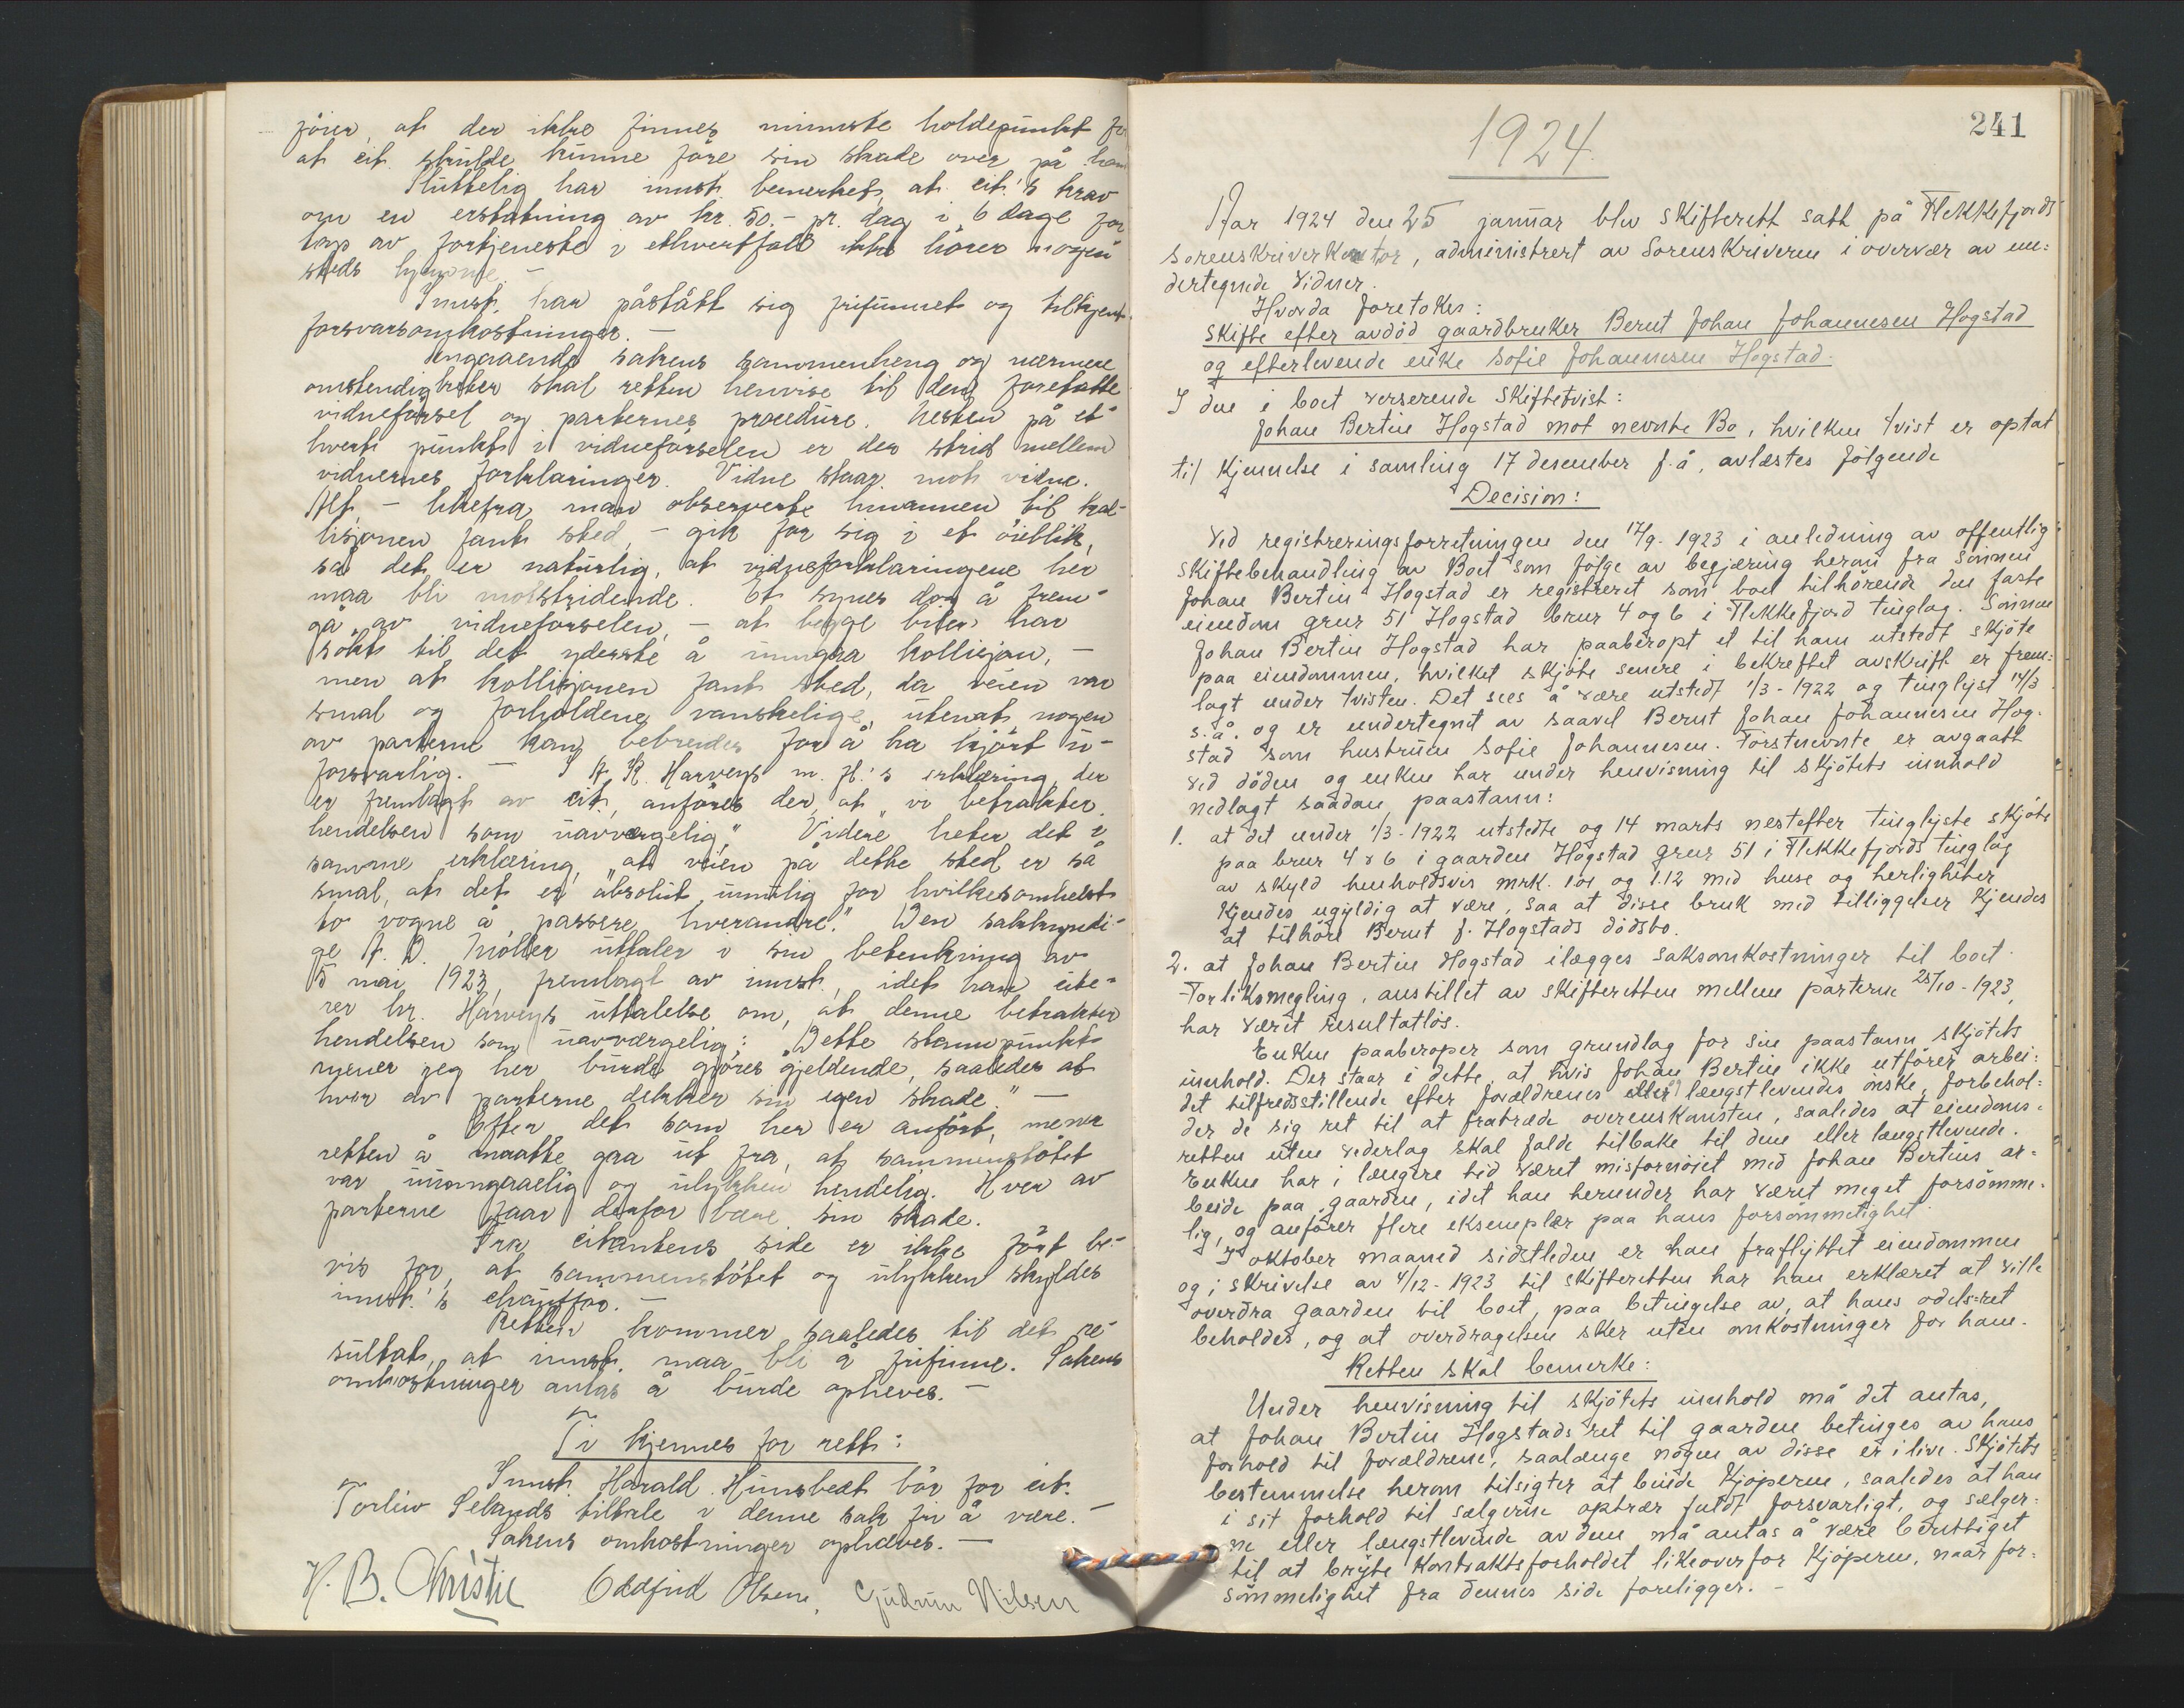 fører, at der ikke finnes minnste holdepunkt
at cit. skulde kunne føre sin skade over på
Sluttelig har innst. bemerket, at cit.'s krav
om en erstatning av kr. 50.- pr. dag i 6 dage for
tap av fortjeneste i ethvertfald ikke hører nogen
steds hjemme. -
Innst. har påstått sig frifunnet og tilkjent
forsvarsomkostninger. -
Angaaende sakens sammenheng og nærmere
omstendigheter skal retten henvise til den foretatte
vidneførsel og parternes procedure. Nesten på et-
hvert punkt i vidneførselen er der strid mellem
vidnernes forklaringer. Vidne staar mot vidne.
Alt - likefra man observerte hinannen til kol-
lisjonen fant sted, - gik for sig i et øieblik,
så det er naturlig, at vidneforklaringene her
maa bli motstridende. Et synes dog å frem-
gå av vidneførselen, - at begge biler har
søkt til det ydeste å unngaa kollisjon, -
men at kollisjonen fant sted, da veien var
smal og forholdene vanskelige, utenat nogen
av parterne kan bebreides for å ha kjørt u-
forsvarlig. - I A. K. Harveys m. fl.'s erklæring, der
er fremlagt av cit., anføres der, at "vi betrakter
hendelsen som uavværgelig". Videre heter det i
samme erklæring, "at veien på dette sted er så
smal, at det er absolut umulig for hvilkesomhelst
to vogne å passere hverandre." Den sakkyndi-
ge A. D. Møller uttaler i sin betenkning av
5 mai 1923, fremlagt av innst., idet han cite-
rer hr. Harveys uttalelse om, at denne betrakter
hendelsen som uavværgelig: "Dette standpunkt
mener jeg her burde gjøres gjeldende, saaledes at
hver av parterne dekker sin egen skade." -
Efter det som her er anført, mener
retten å maatte gaa ut fra, at sammenstøtet
var uunngaaelig og ulykken hendelig. Hver av
parterne faar derfor bære sin skade.
Fra citantens side er ikke ført be-
vis for, at sammenstøtet og ulykken skyldes
innst.'s chauffør. -
Retten kommer saaledes til det re-
sultat, at innst. maa bli å frifinne. Sakens
omkostninger antas å burde opheves. -
Ti kjennes for rett:
Innst. Harald Hunsbedt bør for cit.
Torleiv Selands tiltale i denne sak fri å være. -
Sakens omkostninger ophæves. -
H. B. Christie Oddfrid Olsen, Gudrun Nilsen
1924.
241
Aar 1924 den 25 januar blev skifterett satt på Flekkefjords
sorenskriverkontor, administrert av sorenskriveren i overvær av un=
dertegnede vidner.
Hvorda foretokes:
Skifte efter avdød gaardbruker Bernt Johan Johannesen Hogstad
og efterlevende enke Sofie Johannesen Hogstad.
I den i boet verserende skiftetvist:
Johan Bertin Hogstad mot nevnte Bo, hvilken tvist er optat
til kjennelse i samling 17 desember f.å, avlæstes følgende
Decision:
Ved registreringsforretningen den 17/9. 1923 i anledning av offentlig
skiftebehandling av Boet som følge av begjæring herom fra sønnen
Johan Bertin Hogstad er registreret som boet tilhørende den faste
eiendom gnr 51 Hogstad bnr 4 og 6 i Flekkefjord tinglag. Sønnen
Johan Bertin Hogstad har paaberopt et til ham utstedt skjøte
paa eiendommen, hvilket skjøte senere i bekreftet avskrift er frem=
lagt under tvisten. Det sees å være utstedt 1/3 - 1922 og tinglyst 14/3
s.å. og er undertegnet av saavel Bernt Johan Johannesen Hog-
stad som hustruen Sofie Johannesen. Førstnevnte er avgaatt
ved døden og enken har under henvisning til skjøtets innhold
nedlagt saadan paastann:
1. at det under 1/3 - 1922 utstedte og 14 marts nestefter tinglyste skjøte
paa bnr 4 & 6 i gaarden Hogstad gnr 51 i Flekkefjords tinglag
av skyld henholdsvis mrk. 1.01 og 1.12 med huse og herligheter
kjendes ugyldig at være, saa at disse bruk med tilliggelser kjendes
at tilhøre Bernt J. Hogstads dødsbo.
2. at Johan Bertin Hogstad ilægges saksomkostninger til boet.
Forliksmegling, anstillet av skifteretten mellem parterne 25/10 - 1923,
har været resultatløs.
Enken paaberoper som grundlag for sin paastann skjøtets
innhold. Der staar i dette, at hvis Johan Bertin ikke utfører arbei:
det tilfredsstillende efter forældrenes eller længstlevendes ønske, forbehol:
der de sig ret til at fratræde overenskomsten, saaledes at eiendoms:
retten uten vederlag skal falde tilbake til dem eller længstlevende.
Enken har i længere tid været misfornøiet med Johan Bertins ar=
beide paa gaarden, idet han herunder har været meget forsømme-
lig, og anfører flere eksempler paa hans forsømmelighet.
I oktober maaned sidstleden er han fraflyttet eiendommen
og i skrivelse av 4/12 - 1923 til skifteretten har han erklæret at ville
overdra gaarden til boet, paa betingelse av, at hans odels=ret
beholdes, og at overdragelsen sker uten omkostninger for ham.
Retten skal bemerke:
Under henvisning til skjøtets innhold må det antas,
at Johan Bertin Hogstads ret til gaarden betinges av hans
forhold til forældrene, saalænge nogen av disse er i live. Skjøtets
bestemmelse herom tilsigter at binde kjøperen, saaledes at han
i sit forhold til sælgerne optrær fuldt forsvarligt, og sælger:
ne eller længstlevende av dem må antas å være berettiget
til at bryte kontraktsforholdet likeoverfor kjøperen, naar for:
sømmelighet fra dennes side foreligger. -